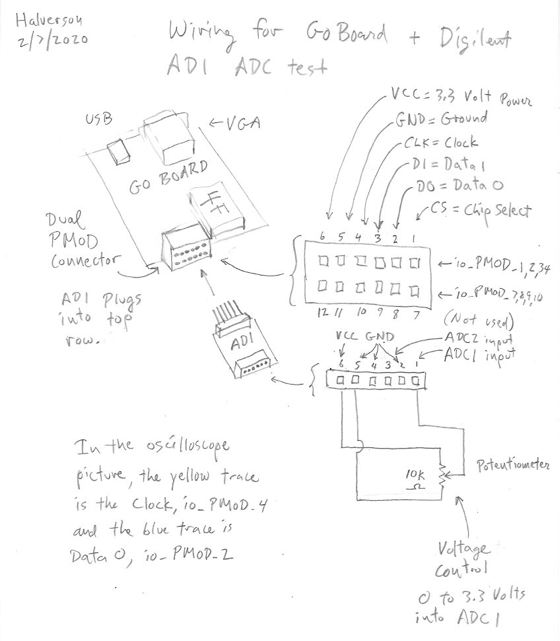 Halverson
2/7/2020
Wiring for Go Board + Digilent
AD1 ADC test
USB
VGA
GO BOARD
Dual
PMOD
Connector
AD1 Plugs
into top
row.
AD1
VCC = 3.3 Volt Power
GND = Ground
CLK = Clock
D1 = Data 1
D0 = Data 0
CS = Chip Select
6 5 4 3 2 1
io_PMOD_1,2,3,4
io_PMOD_7,8,9,10
12 11 10 9 8 7
(Not used)
VCC GND
ADC2 input
ADC1 input
6 5 4 3 2 1
10K
Ω
Potentiometer
In the oscilloscope
picture, the yellow trace
is the Clock, io_PMOD_4
and the blue trace is
Data 0, io_PMOD_2
Voltage
Control
0 to 3.3 Volts
into ADC1